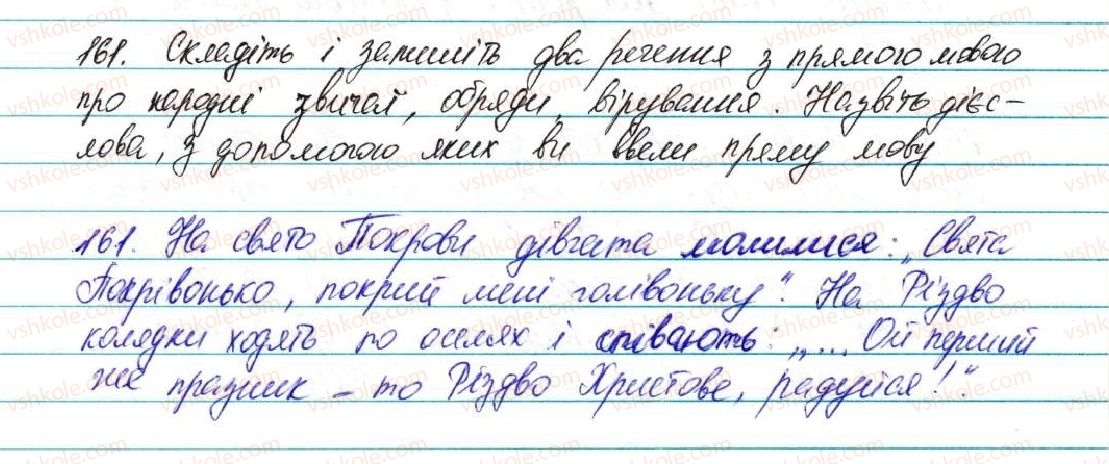 161. Складіть і запишіть два речення з прямою мовою
про народні звичаї, обряди, вірування. Назвіть дієс-
лова, з допомогою яких ви ввели пряму мову
161. На свято Покрови дівчата молилися: „Свята
Покрівонько, покрий мені голівоньку". На Різдво
колядки ходять по оселях і співають: „... Ой перший
же празник – то Різдво Христове, радуйся!"